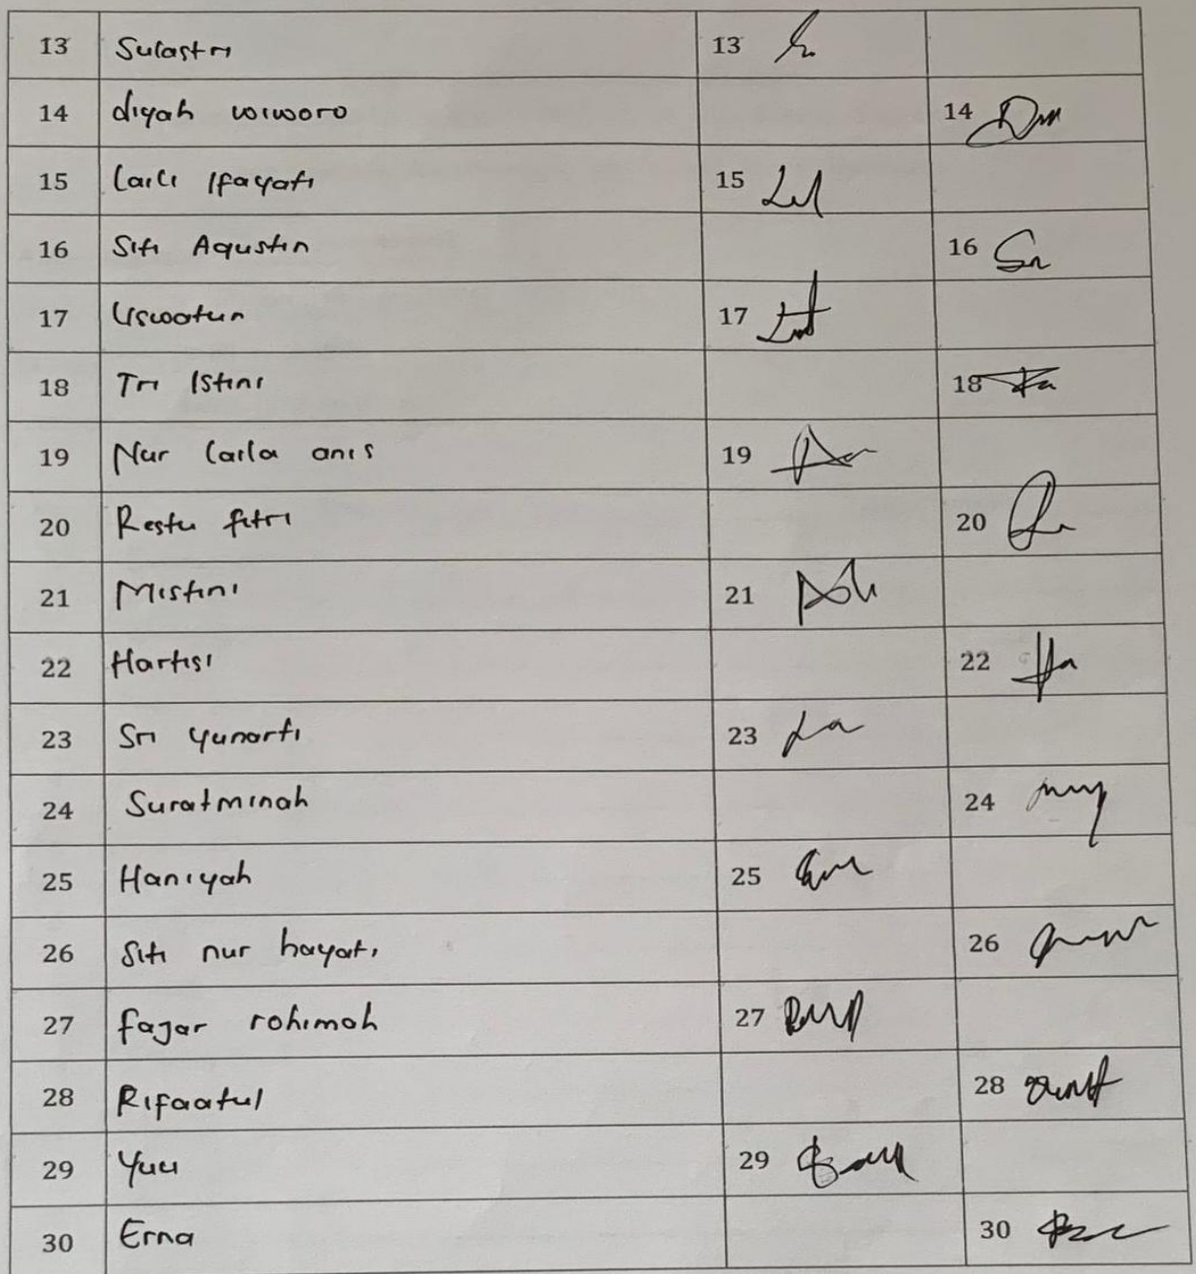 13 Sulastri 13
14 diyah wiworo 14
15 Laili Ifayati 15
16 Siti Agustin 16
17 Uswatun 17
18 Tri Istini 18
19 Nur Laila anis 19
20 Restu fitri 20
21 Mistini 21
22 Hartisi 22
23 Sri yunarti 23
24 Suratminah 24
25 Haniyah 25
26 Siti nur hayati 26
27 fajar rohimah 27
28 Rifaatul 28
29 29
30 Erna 30